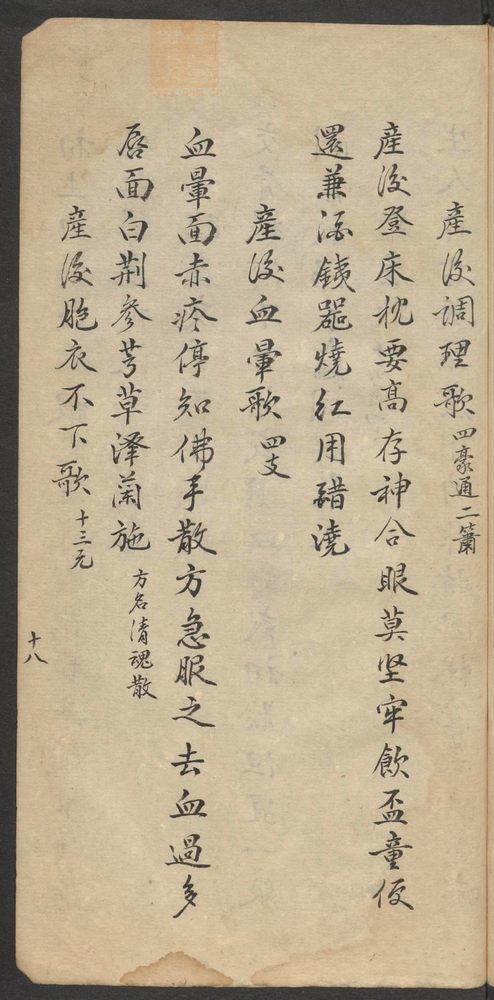 產後調理歌 四豪通二簫
產後登床枕要高存神合眼莫坚牢飲盃童便
還兼酒鐵器燒紅用醋澆
產後血暈歌 四支
血暈面赤疼停知佛手散方急服之去血過多
唇面白荆參芎草澤蘭施 方名清魂散
產後胞衣不下歌 十三元
十八